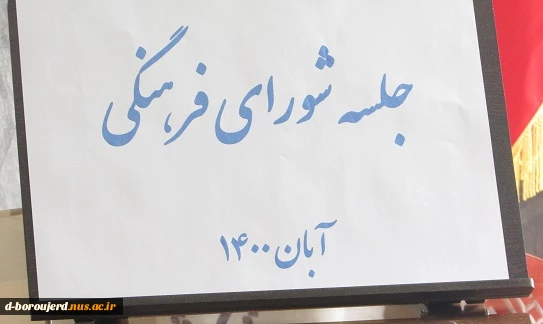 جلسه شورای فرهنگی
آبان ۱۴۰۰
d-boroujerd.nus.ac.ir